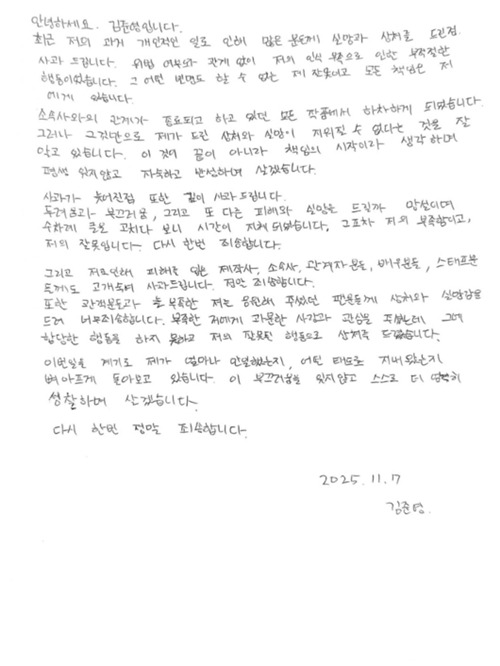 안녕하세요. 김준영입니다.
최근 저의 과거 개인적인 일로 인해 많은 분들께 실망과 상처를 드린점
사과 드립니다. 위법 여부와 관계 없이 저의 인식 부족으로 인한 부적절한
행동이었습니다. 그 어떤 변명도 할 수 없는 제 잘못이고 모든 책임은 저
에게 있습니다.
소속사와의 관계가 종료되고 하고 있던 모든 작품에서 하차하게 되었습니다.
그러나 그것만으로 제가 드린 상처와 실망이 지워질 수 없다는 것을 잘
알고 있습니다. 이 것이 끝이 아니라 책임의 시작이라 생각하며
평생 잊지않고 자숙하고 반성하며 살겠습니다.
사과가 늦어진점 또한 깊이 사과드립니다.
두려움과 부끄러움, 그리고 또 다른 피해와 실망을 드릴까 망설이며
수차례 글을 고치다 보니 시간이 지체되었습니다. 그조차 저의 부족함이고,
저의 잘못입니다. 다시 한번 죄송합니다.
그리고 저로인해 피해를 입은 제작사, 소속사, 관계자분들, 배우분들, 스태프분
들께도 고개숙여 사과드립니다. 정말 죄송합니다.
또한 관객분들과 부족한 저를 응원해 주셨던 팬분들께 상처와 실망감을
드려 너무죄송합니다. 부족한 저에게 과분한 사랑과 관심을 주셨는데 그에
합당한 행동을 하지 못하고 저의 잘못된 행동으로 상처를 드렸습니다.
이번일을 계기로 제가 얼마나 안일했는지, 어떤 태도로 지내왔는지
뼈아프게 돌아보고 있습니다. 이 부끄러움을 잊지않고 스스로 더
성찰하며 살겠습니다.
다시 한번 정말 죄송합니다.
2025.11.7
김준영.